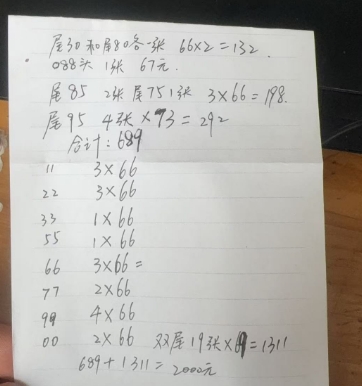 尾30和尾80各一张 66×2=132.
088头 1张 67元.
尾85 2张 尾75 1张 3×66=198.
尾95 4张×73=292
合计:689
11 3×66
22 3×66
33 1×66
55 1×66
66 3×66=
77 2×66
99 4×66
00 2×66 双尾19张×69=1311
689+1311=2000元